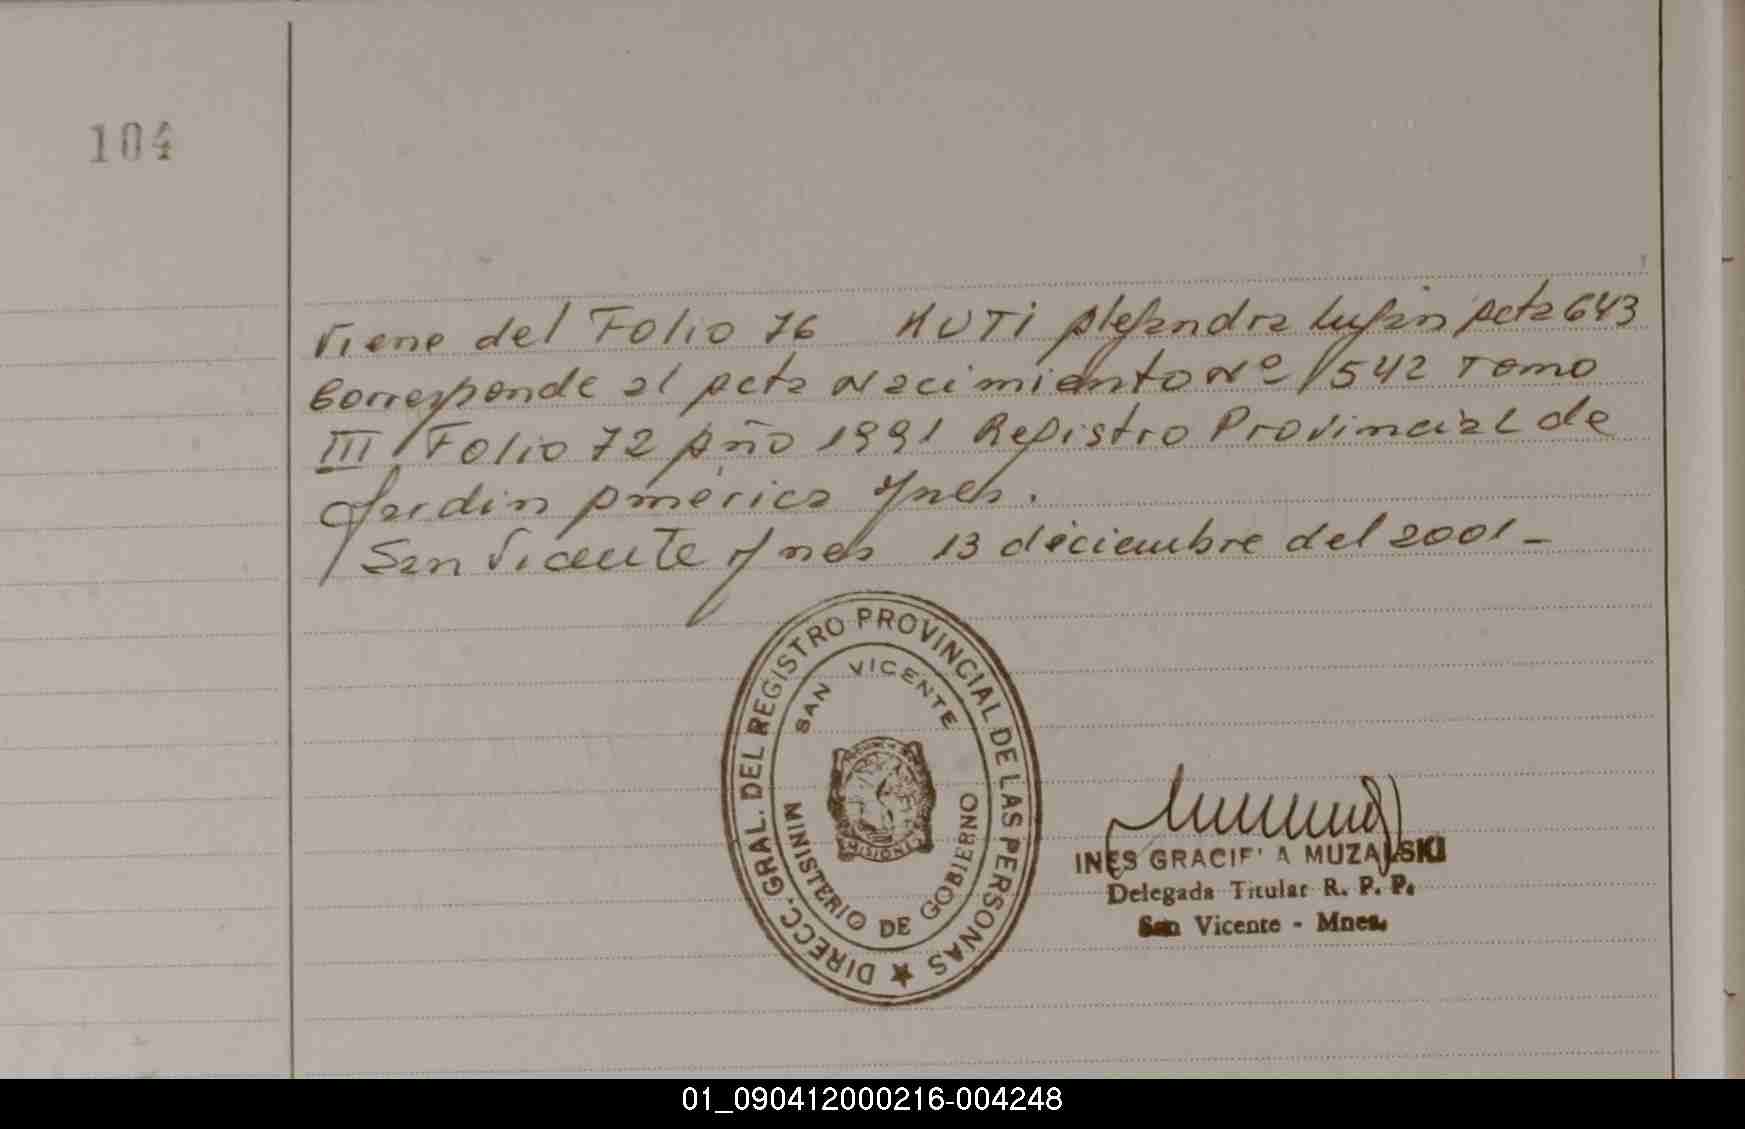 104
Viene del Folio 76 HUTI Alejandra Luján Acta 643
Corresponde al Acta Nacimiento Nº 1542 Tomo
III Folio 72 Año 1991 Registro Provincial de
Jardin América Mnes.
San Vicente Mnes 13 diciembre del 2001-
DIRECC. GRAL. DEL REGISTRO PROVINCIAL DE LAS PERSONAS
SAN VICENTE
MISIONES
MINISTERIO DE GOBIERNO
INES GRACIE A MUZALSKI
Delegada Titular R. P. P.
San Vicente - Mnes.
01_090412000216-004248